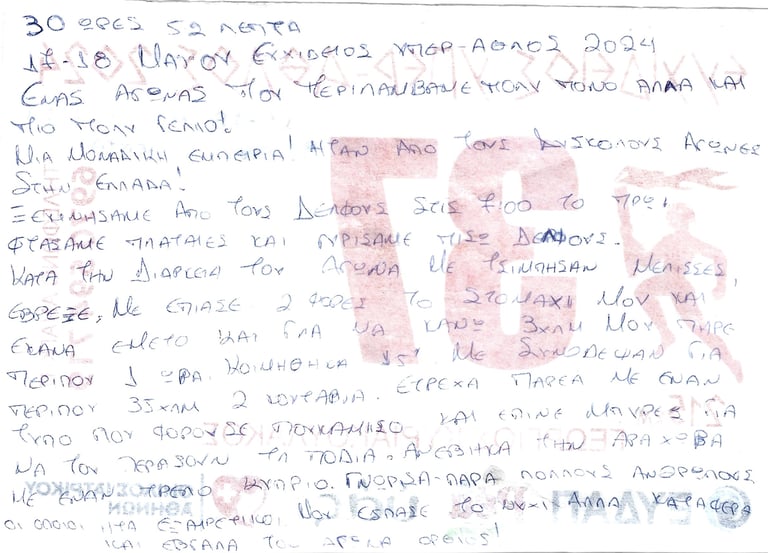 30 ΩΡΕΣ 52 ΛΕΠΤΑ
17-18 ΜΑΓΙΟΥ ΕΥΧΙΔΕΙΟΣ ΥΠΕΡ-ΑΘΛΟΣ 2024
ΕΝΑΣ ΑΓΩΝΑΣ ΠΟΥ ΠΕΡΙΛΑΝΒΑΝΕ ΠΟΛΥ ΠΟΝΟ ΑΛΛΑ ΚΑΙ
ΠΙΟ ΠΟΛΥ ΓΕΛΙΟ!
ΜΙΑ ΜΟΝΑΔΙΚΗ ΕΜΠΕΙΡΙΑ! ΗΤΑΝ ΑΠΟ ΤΟΥΣ ΔΥΣΚΟΛΟΥΣ ΑΓΩΝΕΣ
ΣΤΗΝ ΕΛΛΑΔΑ!
ΞΕΚΙΝΗΣΑΜΕ ΑΠΟ ΤΟΥΣ ΔΕΛΦΟΥΣ ΣΤΙΣ 7:00 ΤΟ ΠΡΩΙ
ΦΤΑΣΑΜΕ ΠΛΑΤΑΙΕΣ ΚΑΙ ΓΥΡΙΣΑΜΕ ΠΙΣΩ ΔΕΛΦΟΥΣ.
ΚΑΤΑ ΤΗΝ ΔΙΑΡΚΕΙΑ ΤΟΥ ΑΓΩΝΑ ΜΕ ΤΣΙΜΠΗΣΑΝ ΜΕΛΙΣΣΕΣ,
ΕΒΡΕΞΕ, ΜΕ ΕΠΙΑΣΕ 2 ΦΟΡΕΣ ΤΟ ΣΤΟΜΑΧΙ ΜΟΥ ΚΑΙ
ΕΚΑΝΑ ΕΜΕΤΟ ΚΑΙ ΓΙΑ ΝΑ ΚΑΝΩ 3ΧΛΜ ΜΟΥ ΠΗΡΕ
ΠΕΡΙΠΟΥ 1 ΩΡΑ. ΚΟΙΜΗΘΗΚΑ 15' ΜΕ ΣΥΝΟΔΕΨΑΝ ΓΙΑ
ΠΕΡΙΠΟΥ 35ΧΛΜ 2 ΚΟΥΤΑΒΙΑ. ΕΤΡΕΧΑ ΠΑΡΕΑ ΜΕ ΕΝΑΝ
ΤΥΠΟ ΠΟΥ ΦΟΡΟΥΣΕ ΠΟΥΚΑΜΙΣΟ ΚΑΙ ΕΠΙΝΕ ΜΠΥΡΕΣ ΓΙΑ
ΝΑ ΤΟΥ ΠΕΡΑΣΟΥΝ ΤΑ ΠΟΔΙΑ. ΑΝΕΒΗΚΑ ΤΗΝ ΑΡΑΧΩΒΑ
ΜΕ ΕΝΑΝ ΤΡΕΛΟ ΚΥΠΡΙΟ. ΓΝΩΡΙΣΑ ΠΑΡΑ ΠΟΛΛΟΥΣ ΑΝΘΡΩΠΟΥΣ
ΟΙ ΟΠΟΙΟΙ ΗΤΑ ΕΞΑΙΡΕΤΙΚΟΙ. ΜΟΥ ΕΣΠΑΣΕ ΤΟ ΝΥΧΙ ΑΛΛΑ ΚΑΤΑΦΕΡΑ
ΚΑΙ ΕΒΓΑΛΑ ΤΟΝ ΑΓΩΝΑ ΟΡΘΙΟΣ!